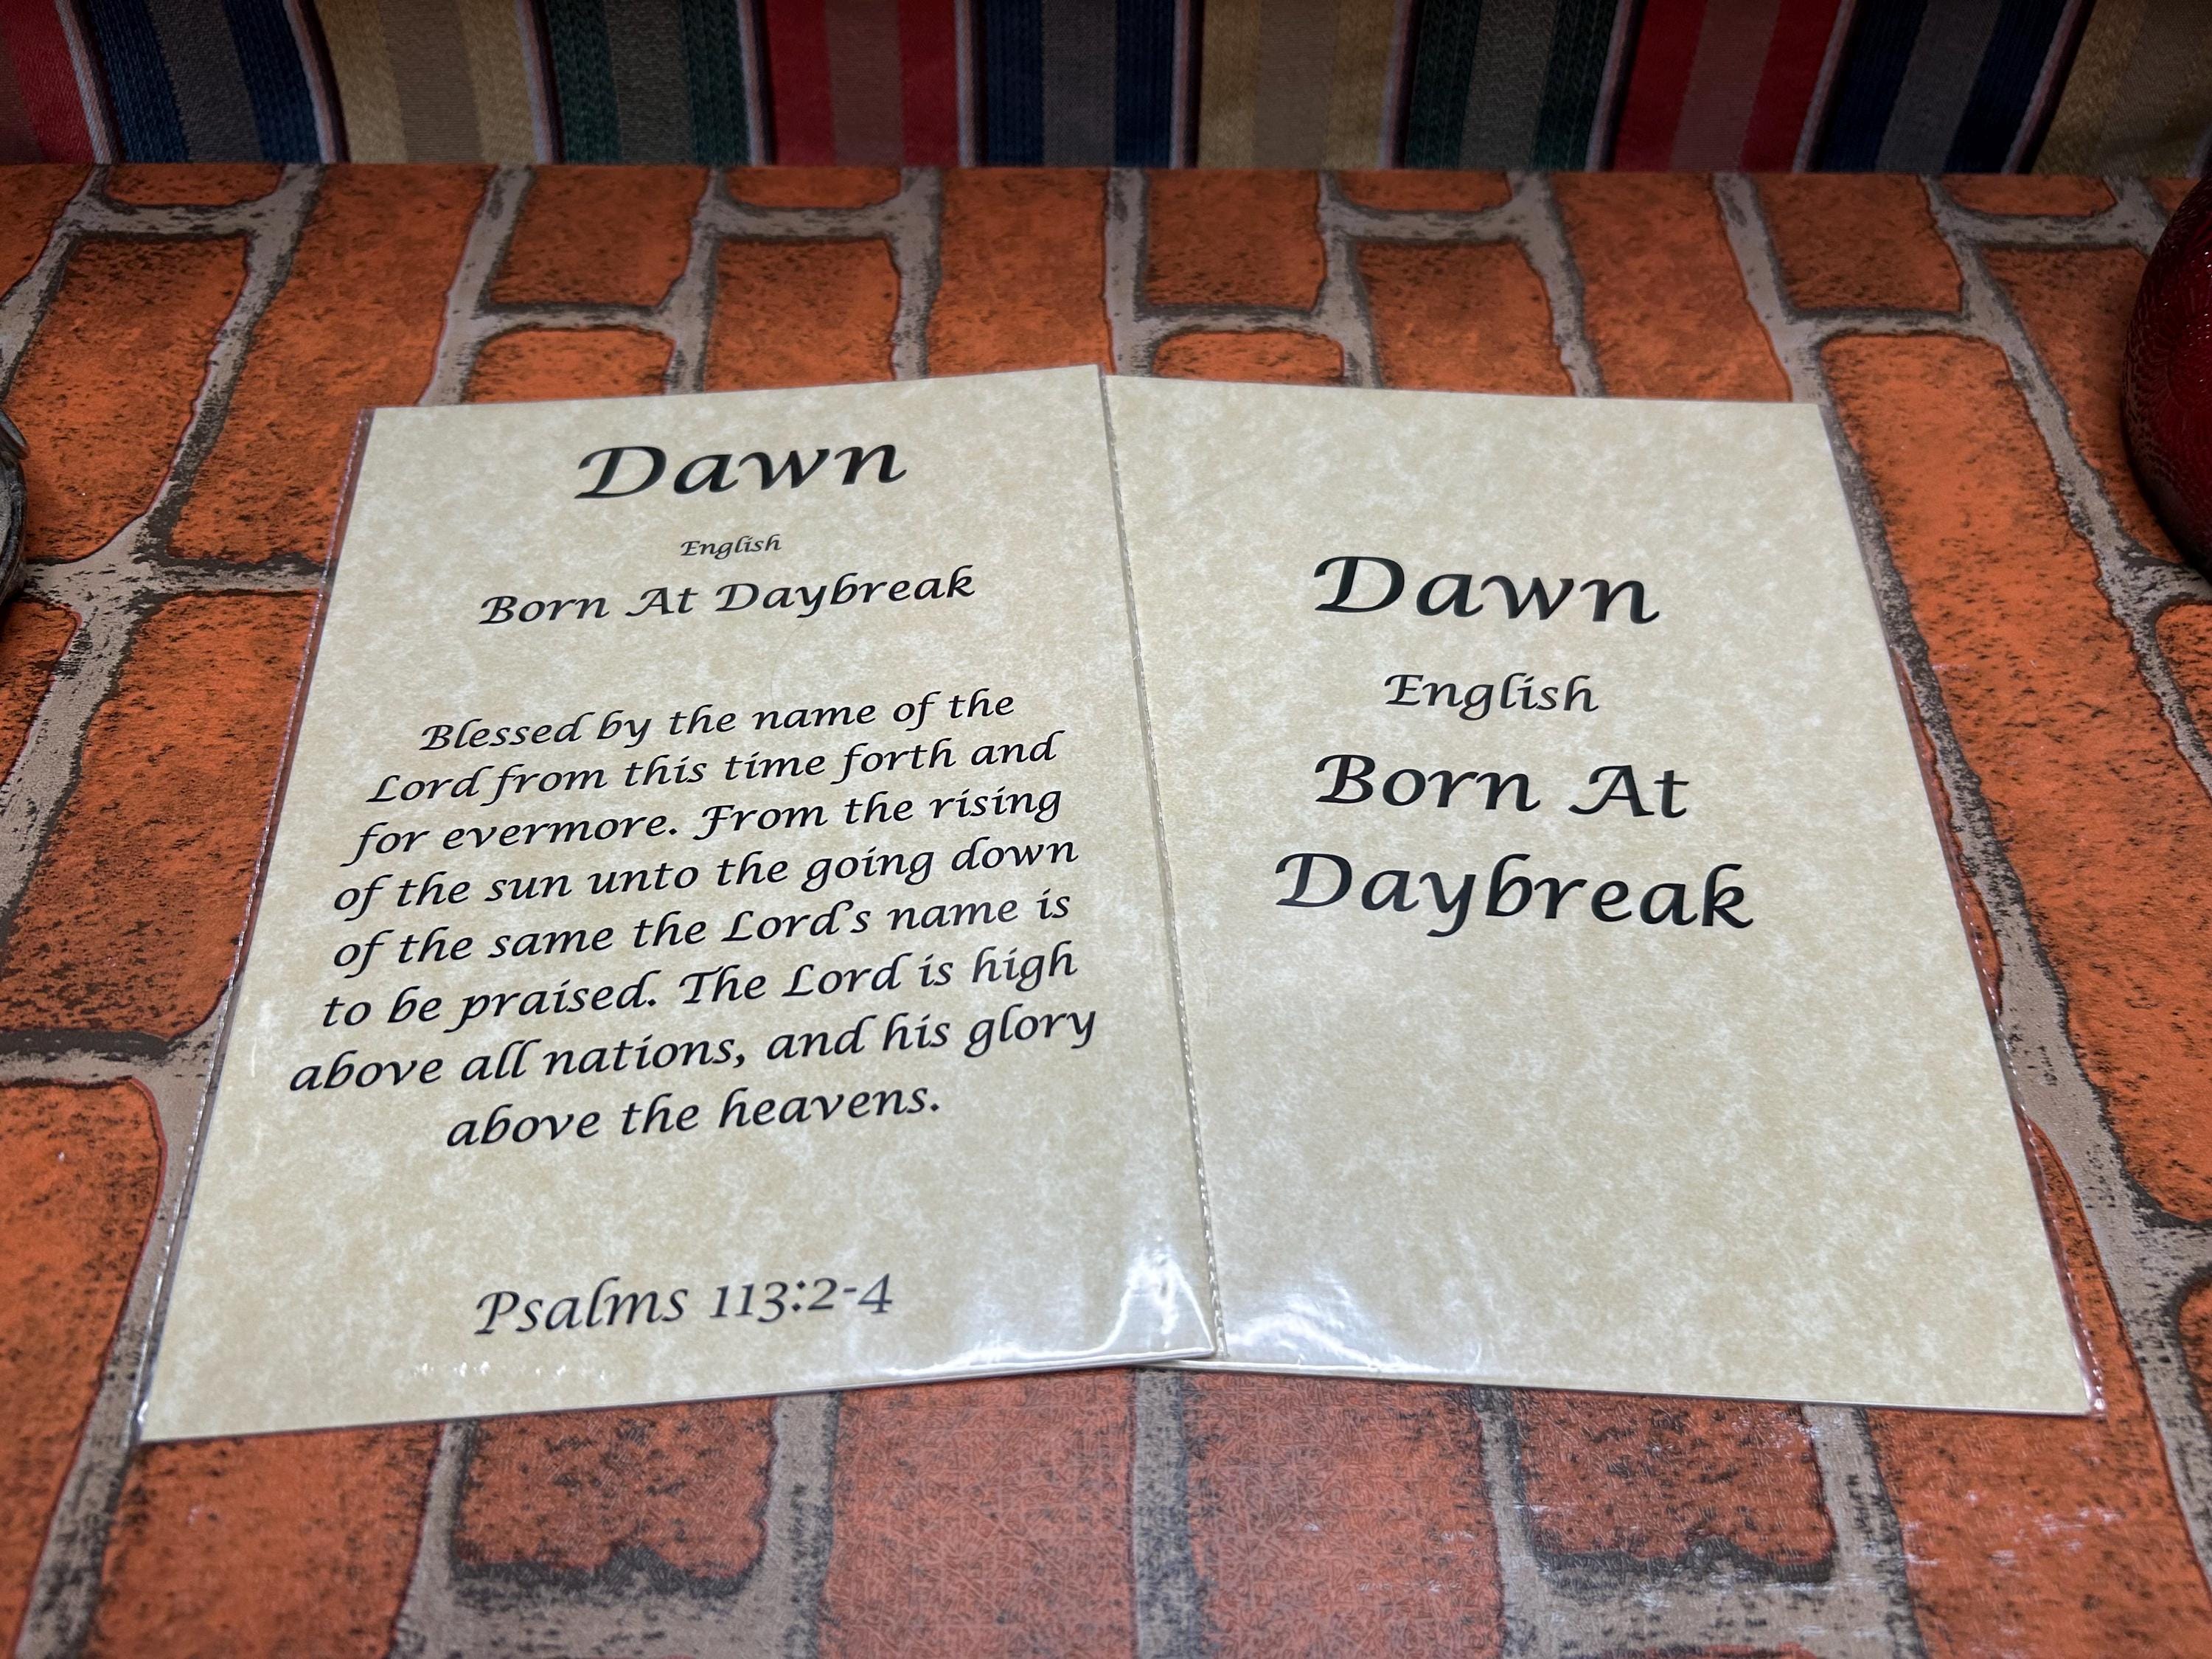 Dawn
English
Born At Daybreak
Blessed by the name of the
Lord from this time forth and
for evermore. From the rising
of the sun unto the going down
of the same the Lord's name is
to be praised. The Lord is high
above all nations, and his glory
above the heavens.
Psalms 113:2-4
Dawn
English
Born At
Daybreak